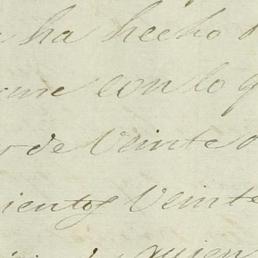 ha hecho
con lo q
de Veinte
ientos Veinte
quien